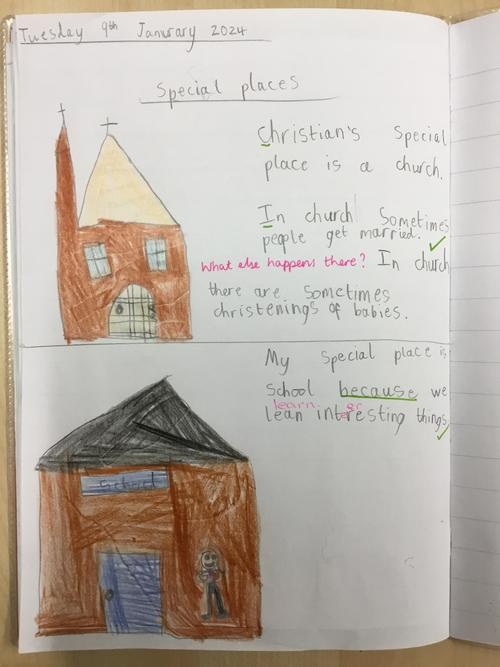 Tuesday 9th Janurary 2024
Special places
Christian's special
place is a church.
In church Sometimes
people get married.
What else happens there? In church
there are Sometimes
christenings of babies.
My special place is
School because we
learn er
lean intresting things
School